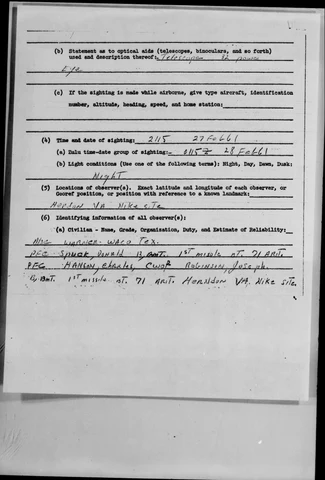 (b) Statement as to optical aids (telescopes, binoculars, and so forth)
used and description thereof: Telescope
Eye
(c) If the sighting is made while airborne, give type aircraft, identification
number, altitude, heading, speed, and home station:
(4) Time and date of sighting: 2115 27 Feb 61
(a) Zulu time-date group of sighting: 0115 Z 28 Feb 61
(b) Light conditions (Use one of the following terms): Night, Day, Dawn, Dusk:
Night
(5) Locations of observer(s). Exact latitude and longitude of each observer, or
Georef position, or position with reference to a known landmark:
VA Nike site
(6) Identifying information of all observer(s):
(a) Civilian - Name, Grade, Organization, Duty, and Estimate of Reliability:
Waco Tex.
PFC Donald B Bat. 1st missile 71 Arit.
PFC HANSON, Charles, CWO2 ROBINSON, Joseph.
B. Bat. 1st missile 71 Arit. Herndon VA. Nike site.